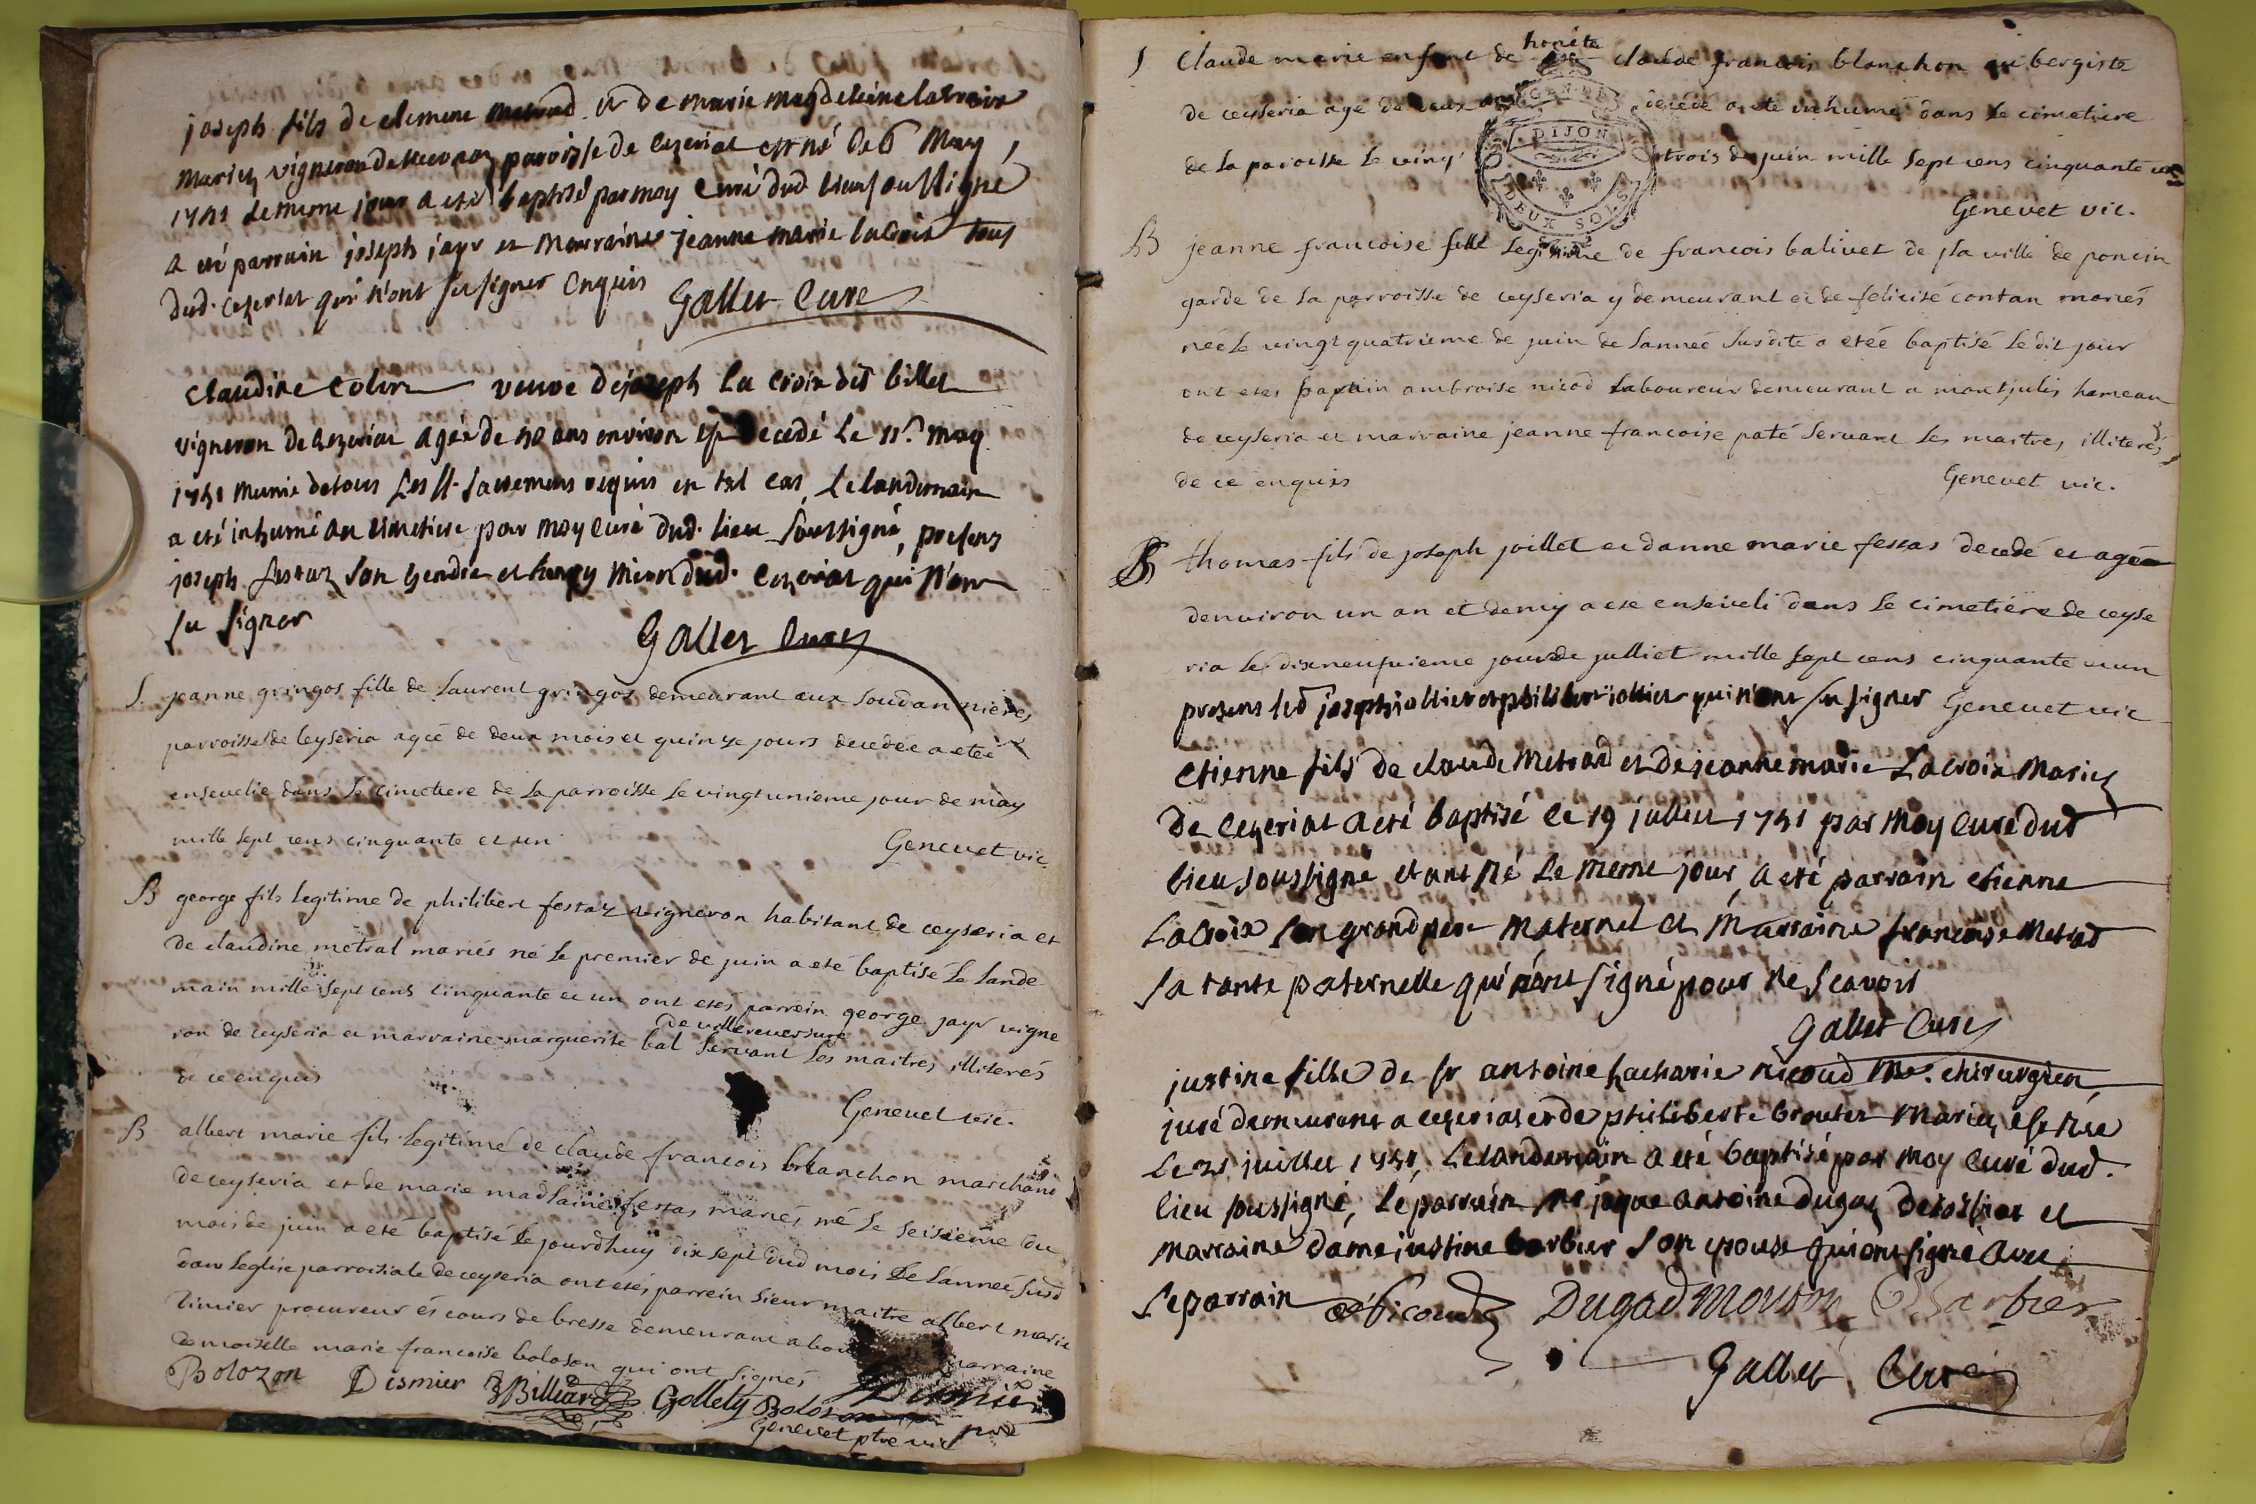 joseph fils de clement metrad et de marie magdeleine lacroix
mariez vignerons de paroisse de cezeriat est né le 6 may
1751 le meme jour a eté baptisé par moy curé dud lieu soussigné
a eté parrain joseph jayr et marraine jeanne marie lacroix tous
dud. cezeriat qui n'ont su signer enquis
Gallet curé
claudine colin veuve de joseph la croix dit billet
vigneron de cezeriat agée de 50 ans environ est decedé le 11e may
1751 munie de tous les st. sacremens requis en tel cas, le landemain
a eté inhumé au cimetiere par moy curé dud. lieu soussigné, presens
joseph festaz son gendre et dud. cezeriat qui n'ont
su signer
Gallet curé
S. jeanne gringos fille de laurent gringos demeurant aux soudannieres
parroisse de ceyseria agée de deux mois et quinze jours decedée a etée
ensevelie dans le cimetiere de la parroisse le vingt unieme jour de may
mille sept cens cinquante et un
Genevet vic.
B george fils legitime de philibert festaz vigneron habitant de ceyseria et
de claudine metral mariés né le premier de juin a eté baptisé le lande
main mille sept cens cinquante et un ont etes parrein george jayr vigne
de villereversure
ron de ceyseria et marraine marguerite bal servant les maitres, illiterés
de ce enquis
Genevet vic.
B albert marie fils legitime de claude francois blanchon marchand
de ceyseria et de marie madlaine festas mariés, né le seisieme du
mois de juin a eté baptisé le jourdhuy dix sept dud mois de lannee susd
dans leglise parroissiale de ceyseria ont etés parrein sieur maitre albert marie
dimier procureur és cours de bresse demeurant a marraine
demoiselle marie francoise boloson qui ont signés
Bolozon Dismier Billiard Gollety Bolozon Dimier
Genevet ptre vic
S Claude marie enfant de honête claude francois blanchon aubergiste
de ceyseria agé de deux ans decedé a eté inhumé dans le cimetiere
de la paroisse le vingt trois de juin mille sept cens cinquante un
GEN DIJON DEUX SOLS
Genevet vic.
B jeanne francoise fille legitime de francois balivet de la ville de poncin
garde de la parroisse de ceyseria y demeurant et de felicité contan mariés
née le vingt quatrieme de juin de lanneé susdite a etée baptisé le dit jour
ont etes parain ambroise nicod laboureur demeurant a montjulis hameau
de ceyseria et marraine jeanne francoise paté servant les maitres, illiterés
de ce enquis
Genevet vic.
S thomas fils de joseph joillet et danne marie festas decedé et agée
denviron un an et demy a ete enseveli dans le cimetiere de ceyse
ria le dixneufvieme jour de julliet mille sept cens cinquante et un
presens led joseph jollier et philibert jollier qui n'ont su signer Genevet vic
etienne fils de claude metrad et de jeanne marie lacroix mariez
de cezeriat a eté baptisé le 19 juillet 1751 par moy curé dud
lieu soussigné etant né le meme jour, a eté parrain etienne
lacroix son grand pere maternel et marraine francoise metrad
sa tante paternelle qui n'ont signé pour ne scavoir
Gallet curé
justine fille de sr antoine zacharie nicoud me. chirurgien
juré demeurant a cezeriat et de philiberte broutet mariez, est née
le 21 juillet 1751, le landemain a eté baptisé par moy curé dud.
lieu soussigné, le parrain me jaque antoine dugad et
marraine dame justine barbier son epouse qui ont signé avec
le parrain Nicoud Dugad Mouton Barbier
Gallet Curé